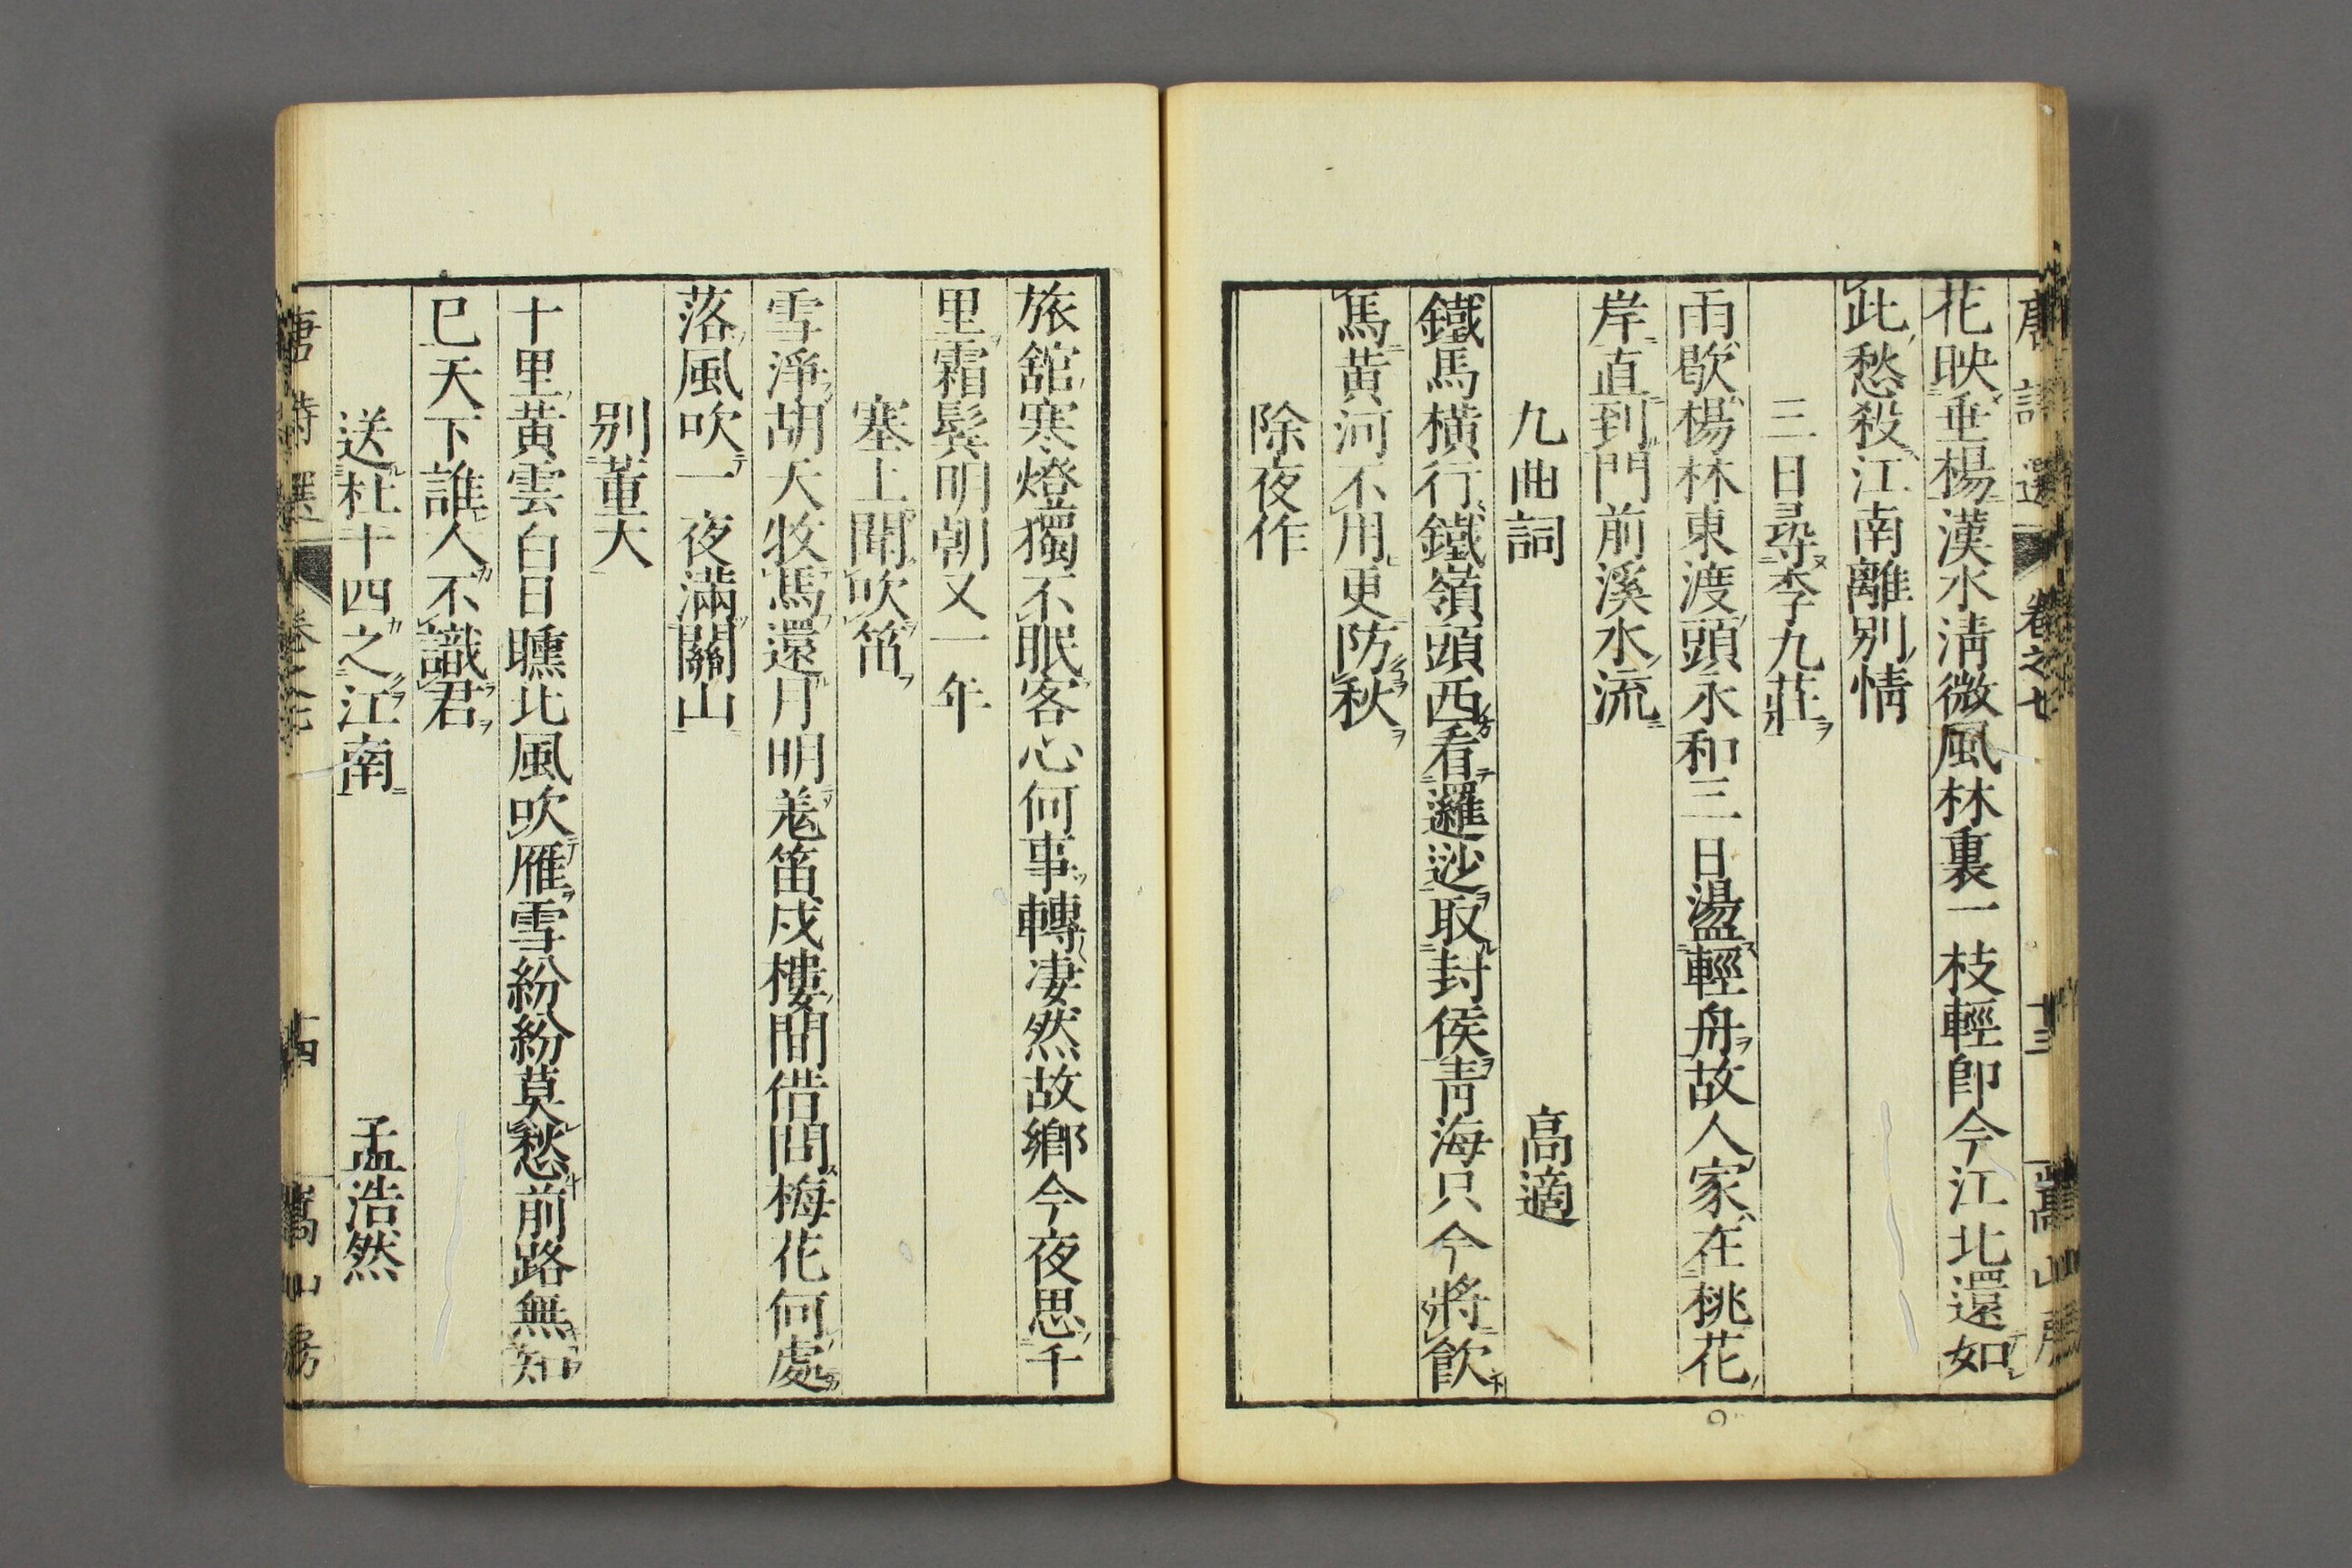 唐詩選 卷之七 十三 嵩山房
花映垂楊漢水淸微風林裏一枝輕卽今江北還如
此愁殺江南離別情
三日尋李九莊
雨歇楊林東渡頭永和三日盪輕舟故人家在桃花
岸直到門前溪水流
九曲詞 高適
鐵馬橫行鐵嶺頭西看邏逤取封侯靑海只今將飮
馬黃河不用更防秋
除夜作
旅舘寒燈獨不眠客心何事轉凄然故鄉今夜思千
里霜鬢明朝又一年
塞上聞吹笛
雪淨胡天牧馬還月明羗笛戍樓間借問梅花何處
落風吹一夜滿關山
別董大
十里黃雲白日曛北風吹雁雪紛紛莫愁前路無知
已天下誰人不識君
送杜十四之江南 孟浩然
唐詩選 卷之七 十四 嵩山房